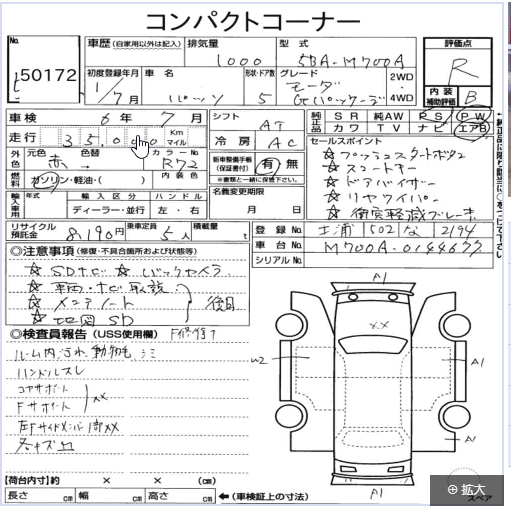 コンパクトコーナー
No.
50172
車歴 (自家用以外は記入)
排気量
1000
型式
5BA-M700A
評価点
R
内装
補助評価
B
初度登録年月
1/7月
車名
パッソ
形状・ドア数
5
グレード
モーダ
Gパッケージ
2WD
4WD
車検
6年7月
シフト
AT
純正品
SR 純AW PS PW
カワ TV ナビ エアB
走行
35,0
Km
マイル
冷房
AC
セールスポイント
☆プッシュスタートボタン
☆スマートキー
☆ドアバイザー
☆リヤワイパー
☆衝突軽減ブレーキ
外色
元色
赤
色替
カラーNo.
R72
新車整備手帳
(保証書付)
有・無
※書類と一緒に保管下さい。
燃料
ガソリン・軽油・( )
内装色
名義変更期限
月 日
輸入車用
年式
輸入区分
ハンドル
ディーラー・並行
左・右
リサイクル
預託金
8,190円
乗車定員
5人
積載量
t
登録No.
土浦 502 な 2194
車台No.
M700A-0144633
シリアルNo.
◎注意事項 (修復・不具合箇所および状態等)
☆SDナビ ☆バックカメラ
☆車両・ナビ取説
☆メンテノート
☆地図SD
後日
◎検査員報告 (USS使用欄)
ルーム内汚れ 動物毛 シミ
ハンドルスレ
コアサポート
Fサポート
XX
左Fサイドメンバー1部XX
各キズ凹
A1
XX
W2
A1
A1
A1
スペア
【荷台内寸】約 × ×
長さ cm 幅 cm 高さ cm ←(車検証上の寸法)
拡大